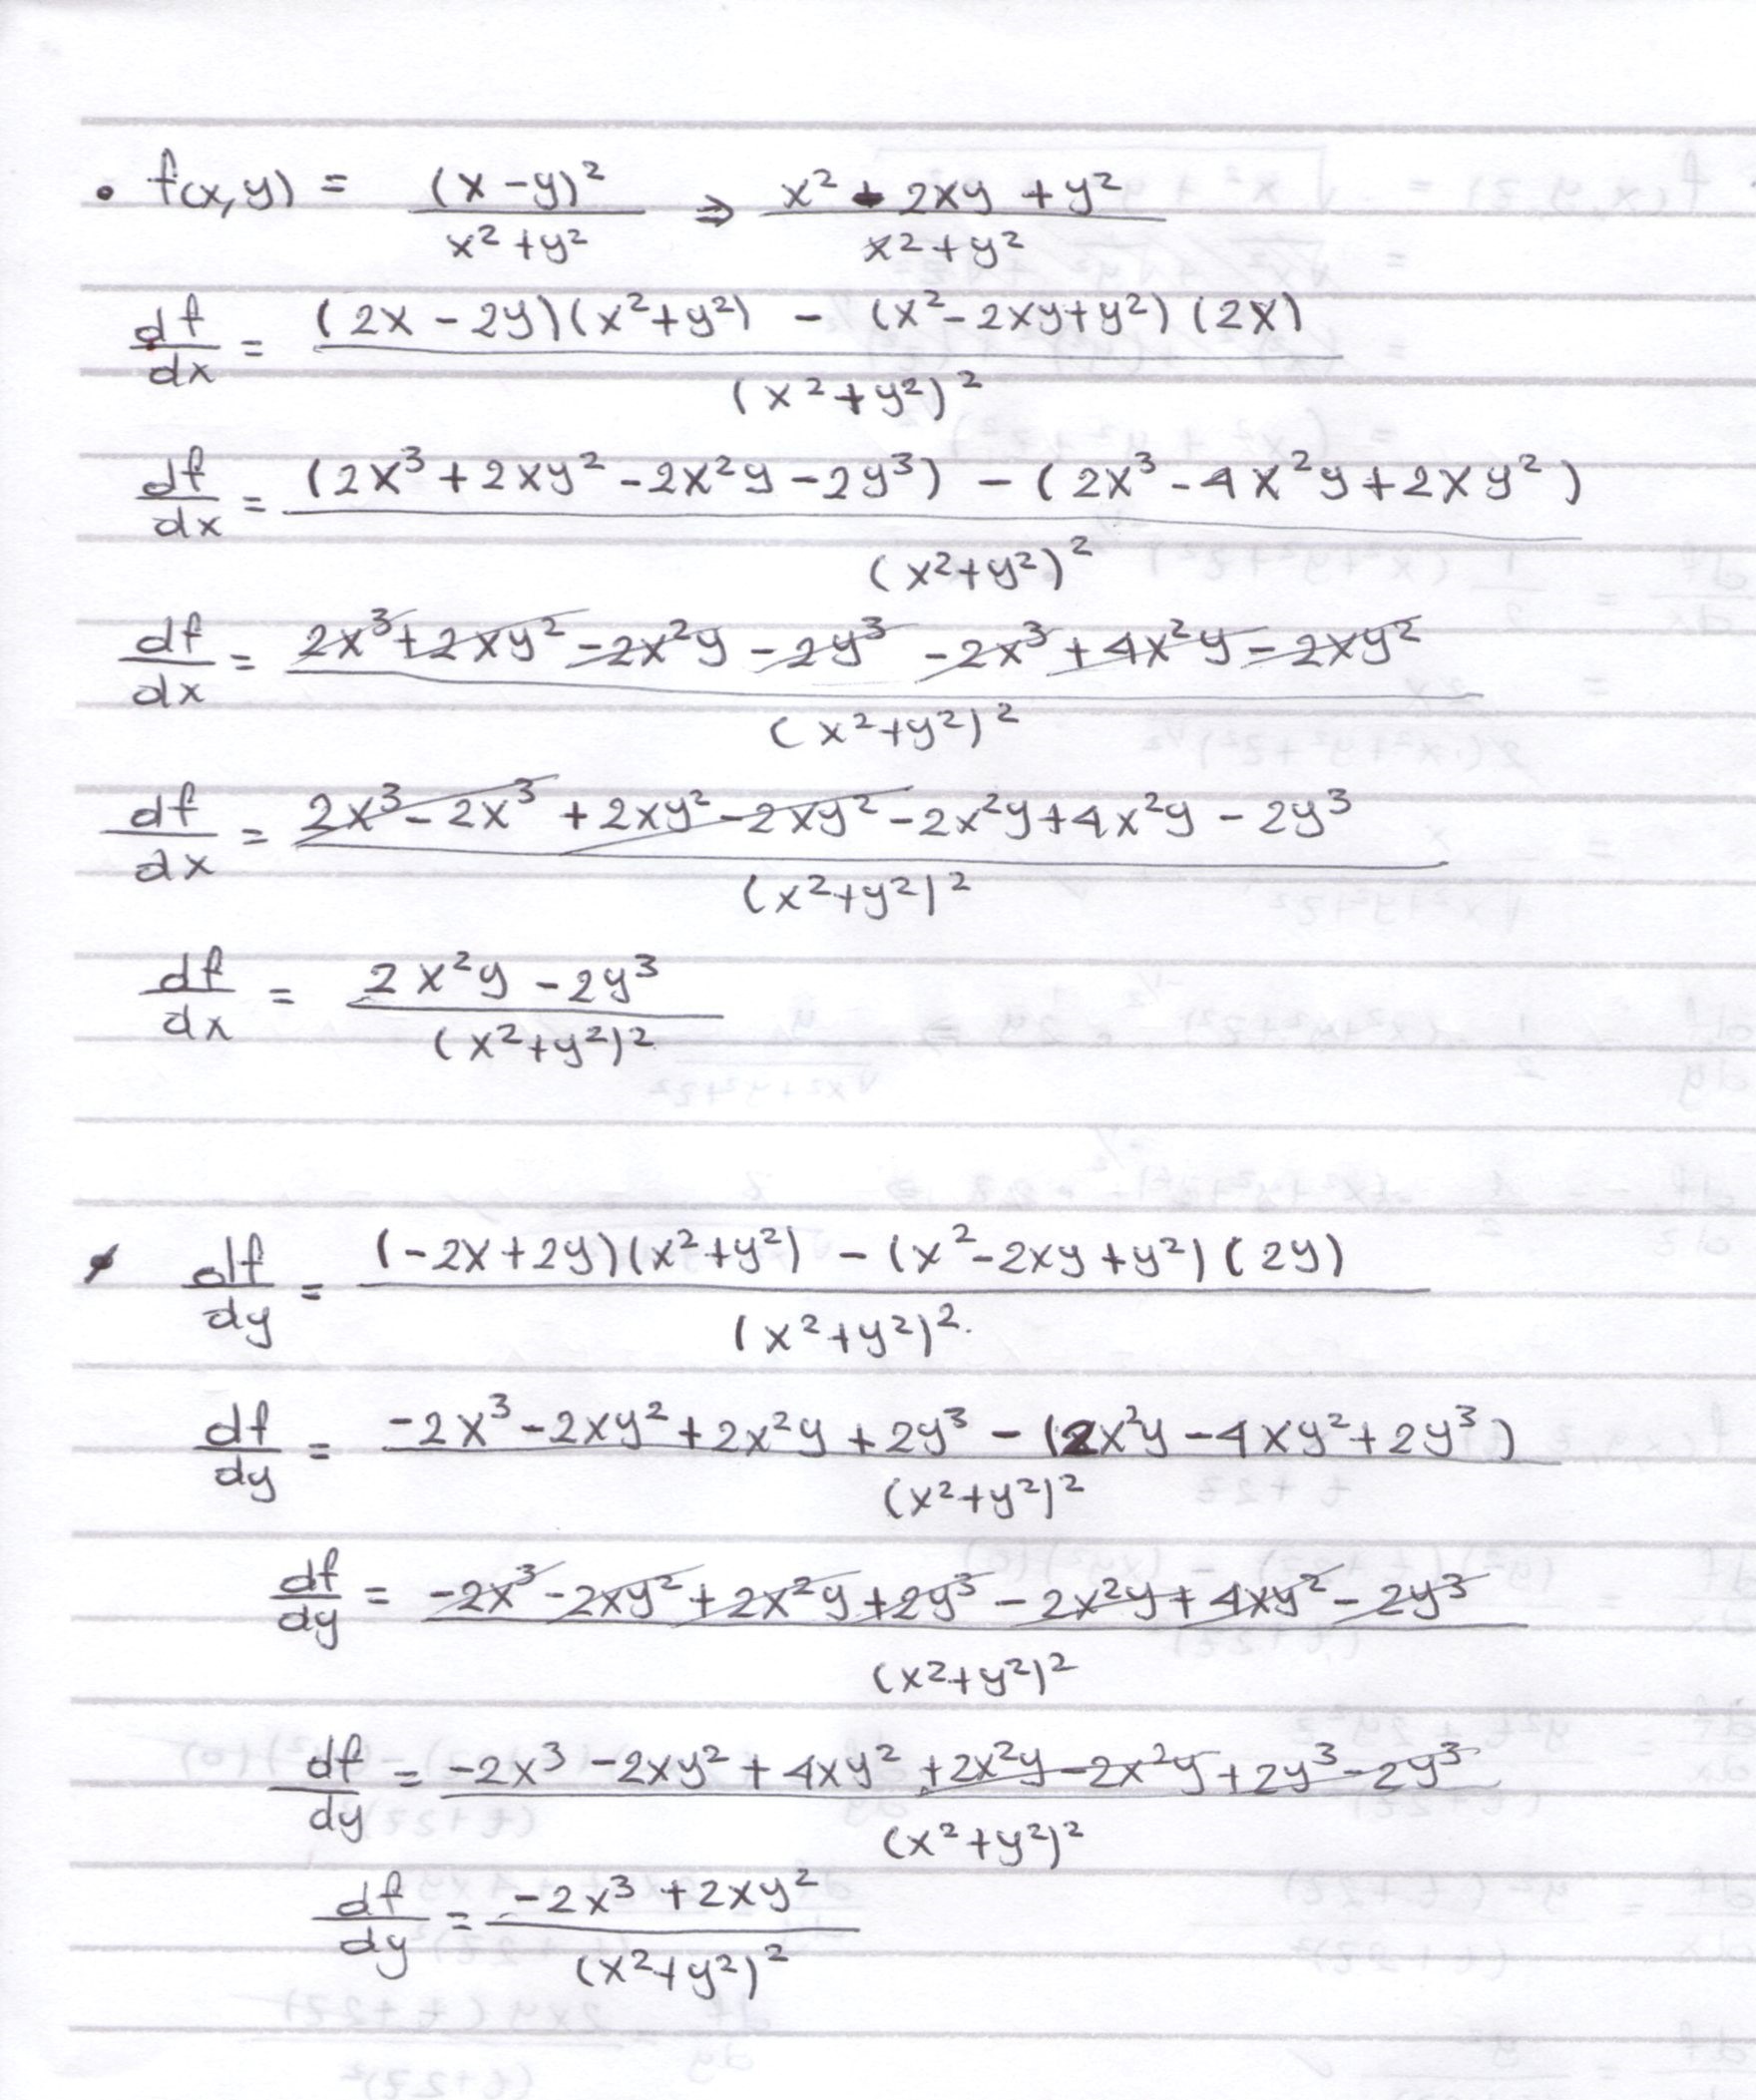 • f(x,y) = (x-y)² / x²+y² ⇒ x² - 2xy + y² / x²+y²
df/dx = (2x - 2y)(x²+y²) - (x²-2xy+y²)(2x) / (x²+y²)²
df/dx = (2x³+2xy²-2x²y-2y³) - (2x³-4x²y+2xy²) / (x²+y²)²
df/dx = 2x³+2xy²-2x²y-2y³-2x³+4x²y-2xy² / (x²+y²)²
df/dx = 2x³-2x³+2xy²-2xy²-2x²y+4x²y-2y³ / (x²+y²)²
df/dx = 2x²y-2y³ / (x²+y²)²
• df/dy = (-2x+2y)(x²+y²) - (x²-2xy+y²)(2y) / (x²+y²)²
df/dy = -2x³-2xy²+2x²y+2y³-(2x²y-4xy²+2y³) / (x²+y²)²
df/dy = -2x³-2xy²+2x²y+2y³-2x²y+4xy²-2y³ / (x²+y²)²
df/dy = -2x³-2xy²+4xy²+2x²y-2x²y+2y³-2y³ / (x²+y²)²
df/dy = -2x³+2xy² / (x²+y²)²